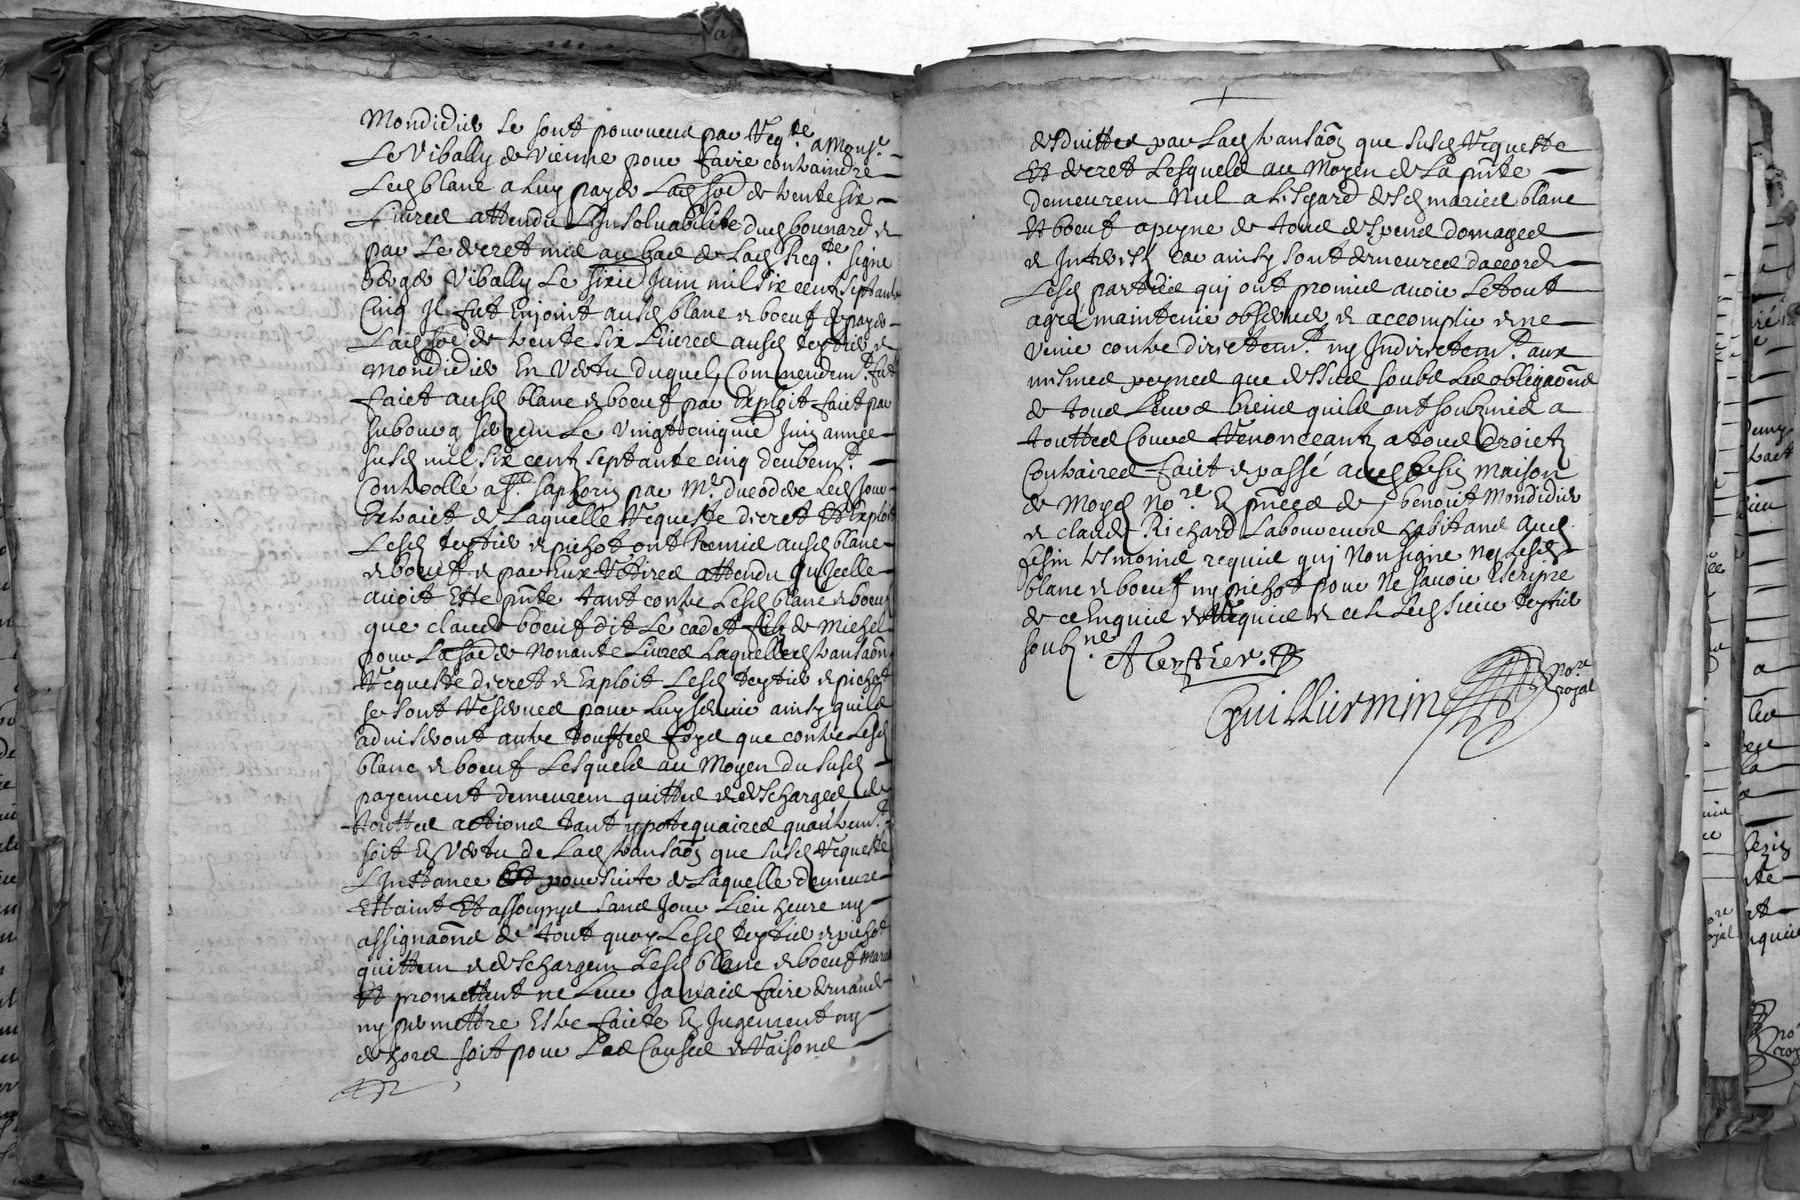 Mondidier se sont pourveus par Req.te a Mons.r
Le Vibally de Vienne pour faire contraindre
Led blanc a luy payer Lad so.e de trente six
Livres attendu L'Insolvabilité dud bonnard et
par Le decret mis au bas de Lad Req.te signé
berger Vibally Le sixie Juin mil six cents septante
Cinq Il fut Enjoint ausd blanc et boeuf de payer
Lad so.e de trente six Livres ausd teytier et
Mondidier En Vertu duquel Commendem.t fut
faict ausd blanc et boeuf par Exploit faict par
Le Vingtcinquie Juin annee
susd mil six cents septante cinq deubem.t
Controllé a S.t saphorin par M.r led jour
Extraict de Laquelle Requeste decret Et Exploit
Lesd teytier et pichot ont Remis ausd blanc
et boeuf et par Eux Retires attendu qu'Icelle
avoit Este pnte tant contre Lesd blanc et boeuf
que claude boeuf dit Le cadet filz de Michel
pour La so.e de Nonante Livres Laquelle d transaon
Requeste decret et Exploit Lesd teytier et pichot
se sont Reserves pour Luy servir ainsy quils
adviseront autre touttes foys que contre Lesd
blanc et boeuf Lesquels au Moyen du susd
payement demeurem quittes et descharges de
touttes actions tant ypotequaires quautrem.t
soit En Vertu de Lad transaon que susd Requeste
L'Instance Et poursuite de Laquelle demeure
Estaint Et assoupye sans Jour Lieu heure ny
assignaons de tout quoy Lesd teytier et pichot
quittem et deschargem Lesd blanc et boeuf maries
Et promettent ne Leur Jamais faire demande
ny permettre Estre faicte En Jugement ny
dehors soit pour Les Causes et Raisons
desduittes par Lad transaon que susd Requeste
Et decret Lesquels au Moyen de La pnte
demeurem Nul a L'Esgard desd maries blanc
Et boeuf a peyne de tous despens domages
et Interestz car ainsy sont demeures d'accord
Lesd parties qui ont promis avoir Le tout
agre maintenir observer et accomplir et ne
venir contre directem.t ny Indirectem.t aux
mesmes peynes que dessus soubz Les obligaons
de tous Leurs biens quils ont soubzmis a
touttes Cours Renonceantz a tous droictz
Contraires faict et passé aud fesin maison
de Moyd No.re En pnces de benoit Mondidier
et claude Richard Laboureurs habitans aud
fesin tesmoins requis qui Non signe Ny Lesd
blanc et boeuf ny pichot pour Ne savoir Escripre
de ce Enquis et Requis et ce h Led sieur teytier
soubz.ne
A teytier
Guilliermin No.re
royal